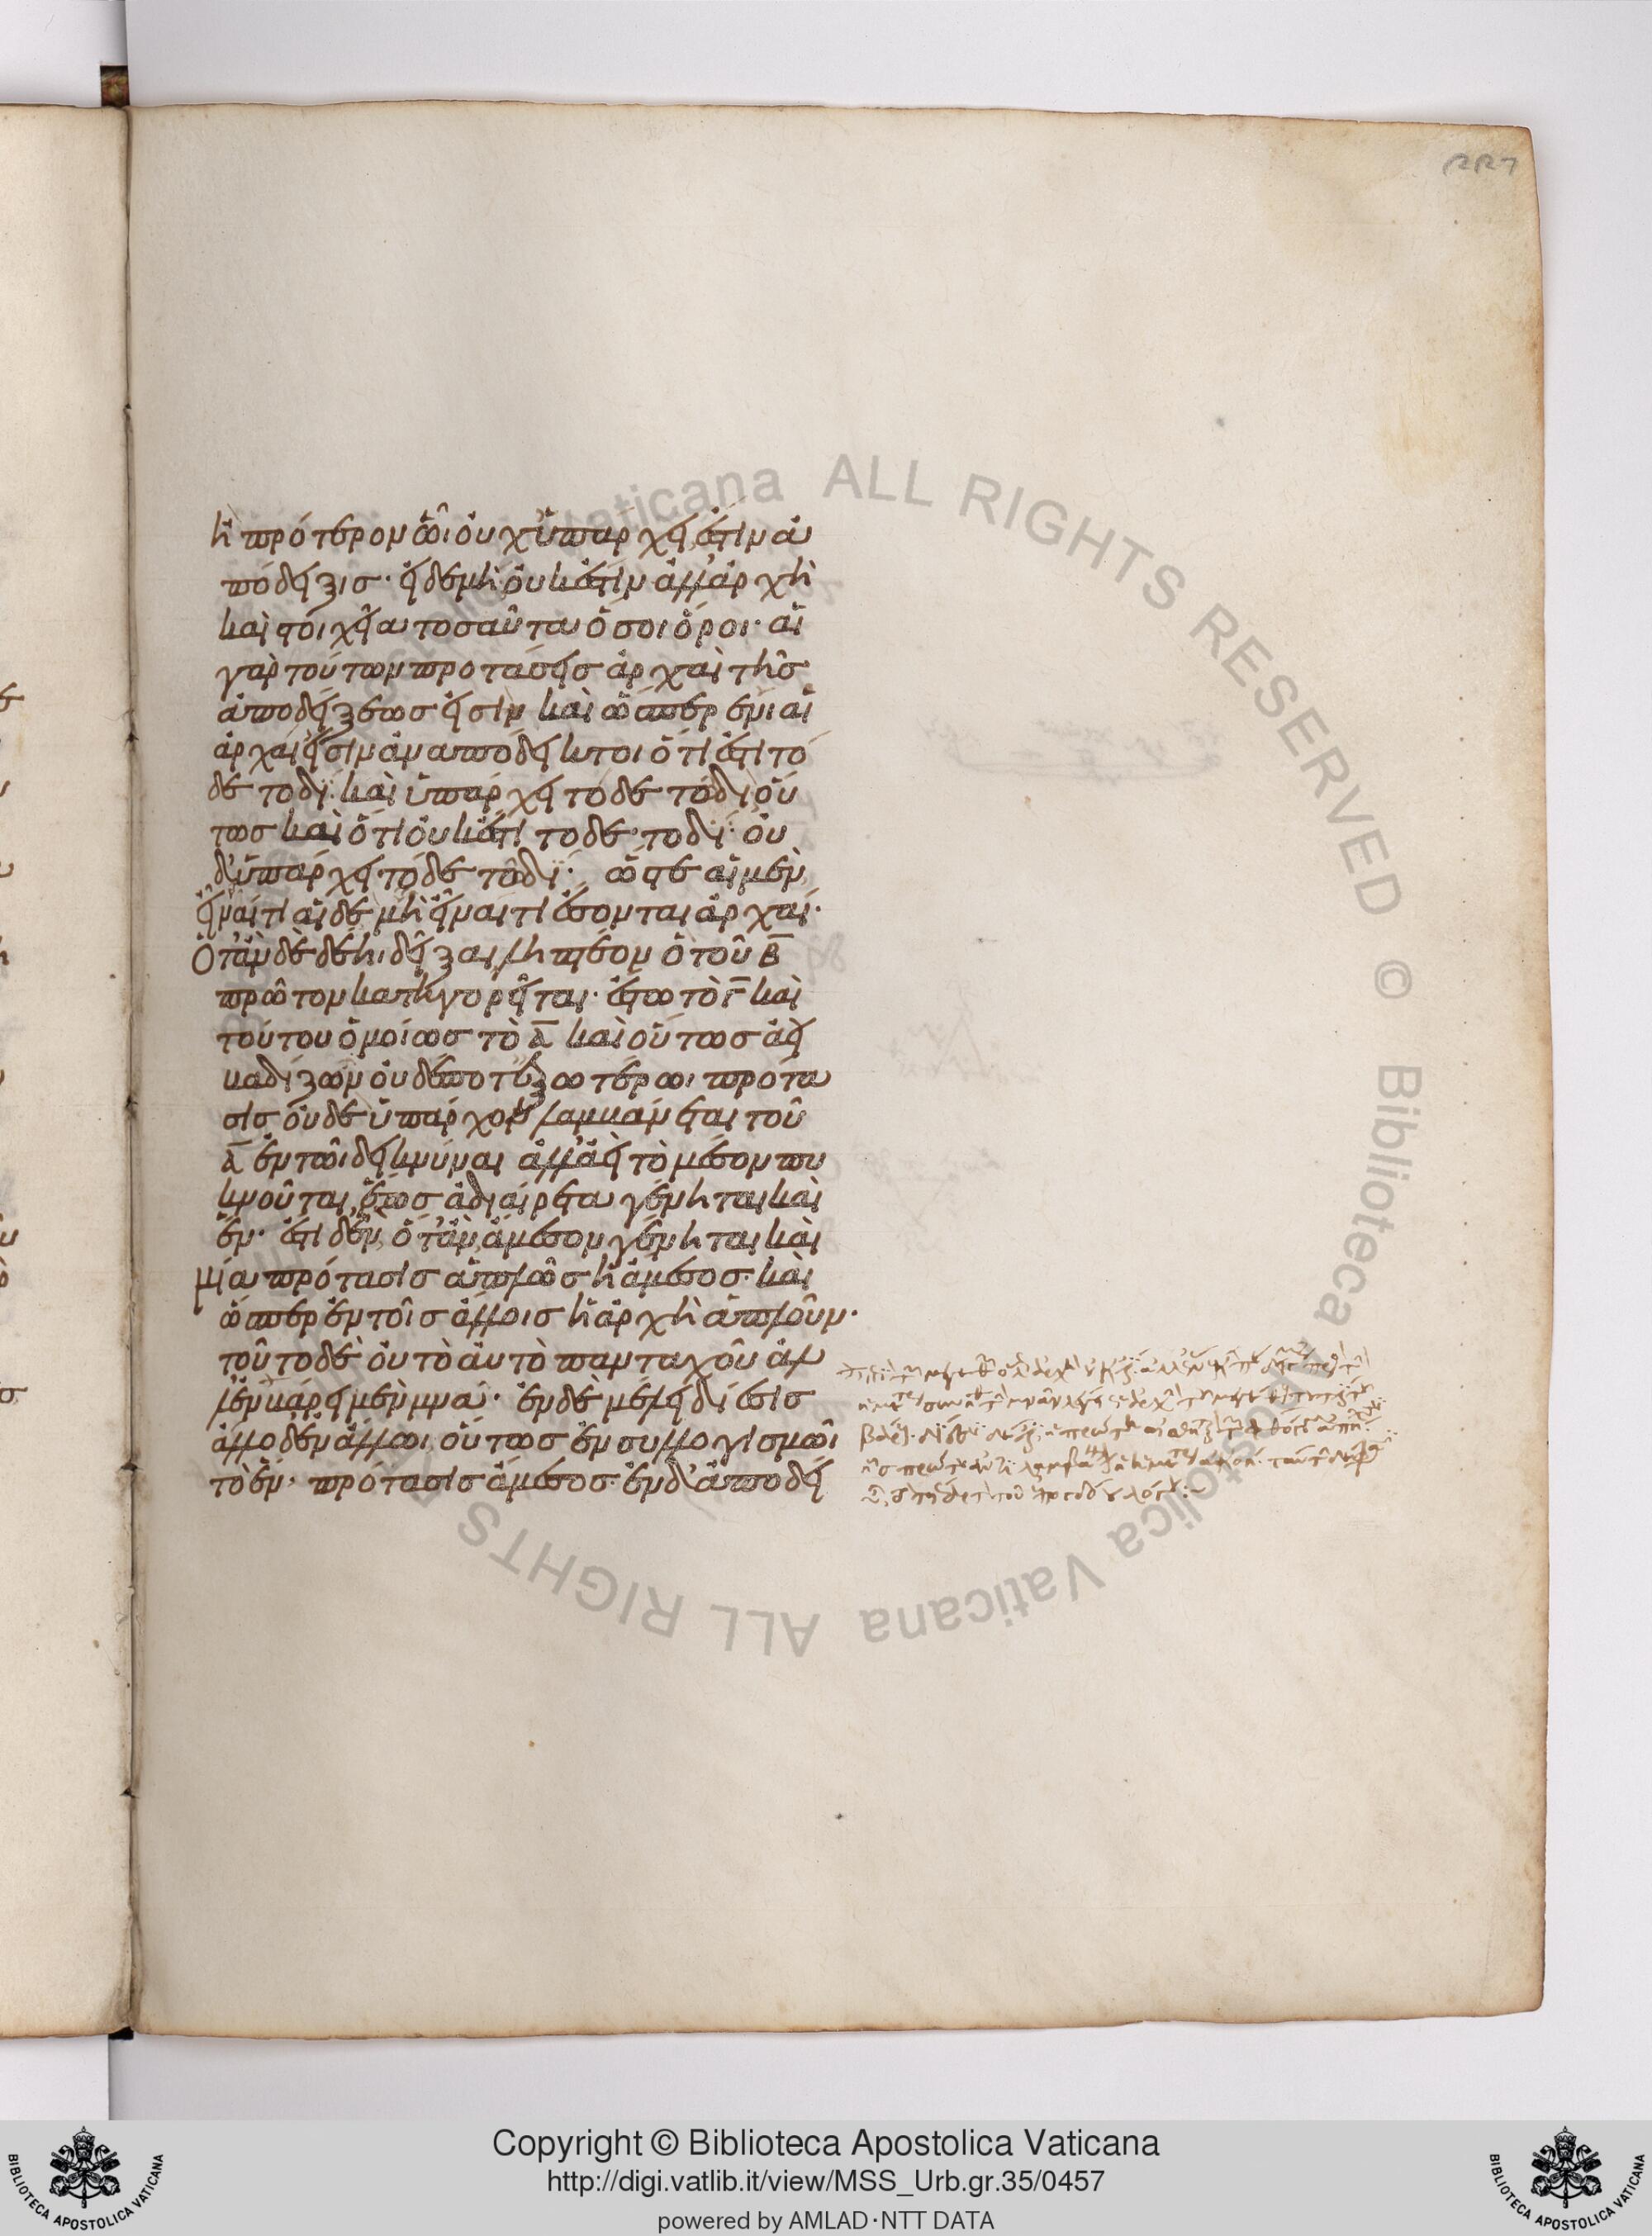 227
ἢ πρότερον ὧι οὐχ ὑπάρχει, ἔστιν ἀ
πόδειξις· εἰ δὲ μὴ οὐκ ἔστιν ἀλλ' ἀρχὴ
καὶ στοιχεῖα τοσαῦτα ὅσοι ὅροι· αἱ
γὰρ τούτων προτάσεις ἀρχαὶ τῆς
ἀποδείξεως εἰσὶν καὶ ὥσπερ ἔνιαι
ἀρχαί εἰσιν ἀναπόδεικτοι ὅτι ἐστὶ τό
δε τοδί· καὶ ὑπάρχει τόδε τῶδὶ οὕ
τως καὶ ὅτι οὐκ ἔστι τόδε τοδί· οὐ
δ' ὑπάρχει τόδε τῶδί· ὥστε αἱ μὲν
εἶναί τι αἱ δὲ μὴ εἶναί τι ἔσονται ἀρχαί·
Ὅταν δὲ δέηι δεῖξαι, ληπτέον ὃ τοῦ Β
πρῶτον κατηγορεῖται· ἔστω τὸ Γ καὶ
τούτου ὁμοίως τὸ Α καὶ οὕτως ἀεὶ
βαδίζων οὐδέποτ' ἐξωτέρωι πρότα
σις οὐδὲ ὑπάρχον λαμβάνεται τοῦ
Α ἐν τῶι δεικνύναι ἀλλ' ἀεὶ τὸ μέσον πυ
κνοῦται, ἕως ἀδιαίρετα γένηται καὶ
ἕν· ἔστι δ' ἕν, ὅταν ἄμεσον γένηται καὶ
μία πρότασις ἁπλῶς ἡ ἄμεσος· καὶ
ὥσπερ ἐν τοῖς ἄλλοις ἡ ἀρχὴ ἁπλοῦν·
τοῦτο δὲ οὐ τὸ αὐτὸ πανταχοῦ ἀλ
λ' ἐν βάρει μὲν μνᾶ· ἐν δὲ μέλει δίεσις
ἄλλο δ' ἐν ἄλλωι, οὕτως ἐν συλλογισμῶι
τὸ ἕν, πρότασις ἄμεσος· ἐν δ' ἀποδεί
Copyright © Biblioteca Apostolica Vaticana
http://digi.vatlib.it/view/MSS_Urb.gr.35/0457
powered by AMLAD·NTT DATA